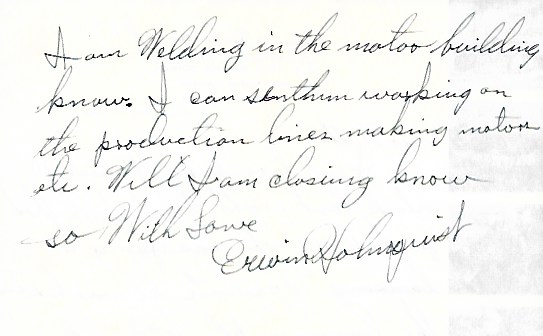 I am Welding in the motoo building
know. I can senthem working on
the production lines making motors
etc. Will I am closing know
so With Love
Erwin Holmquist